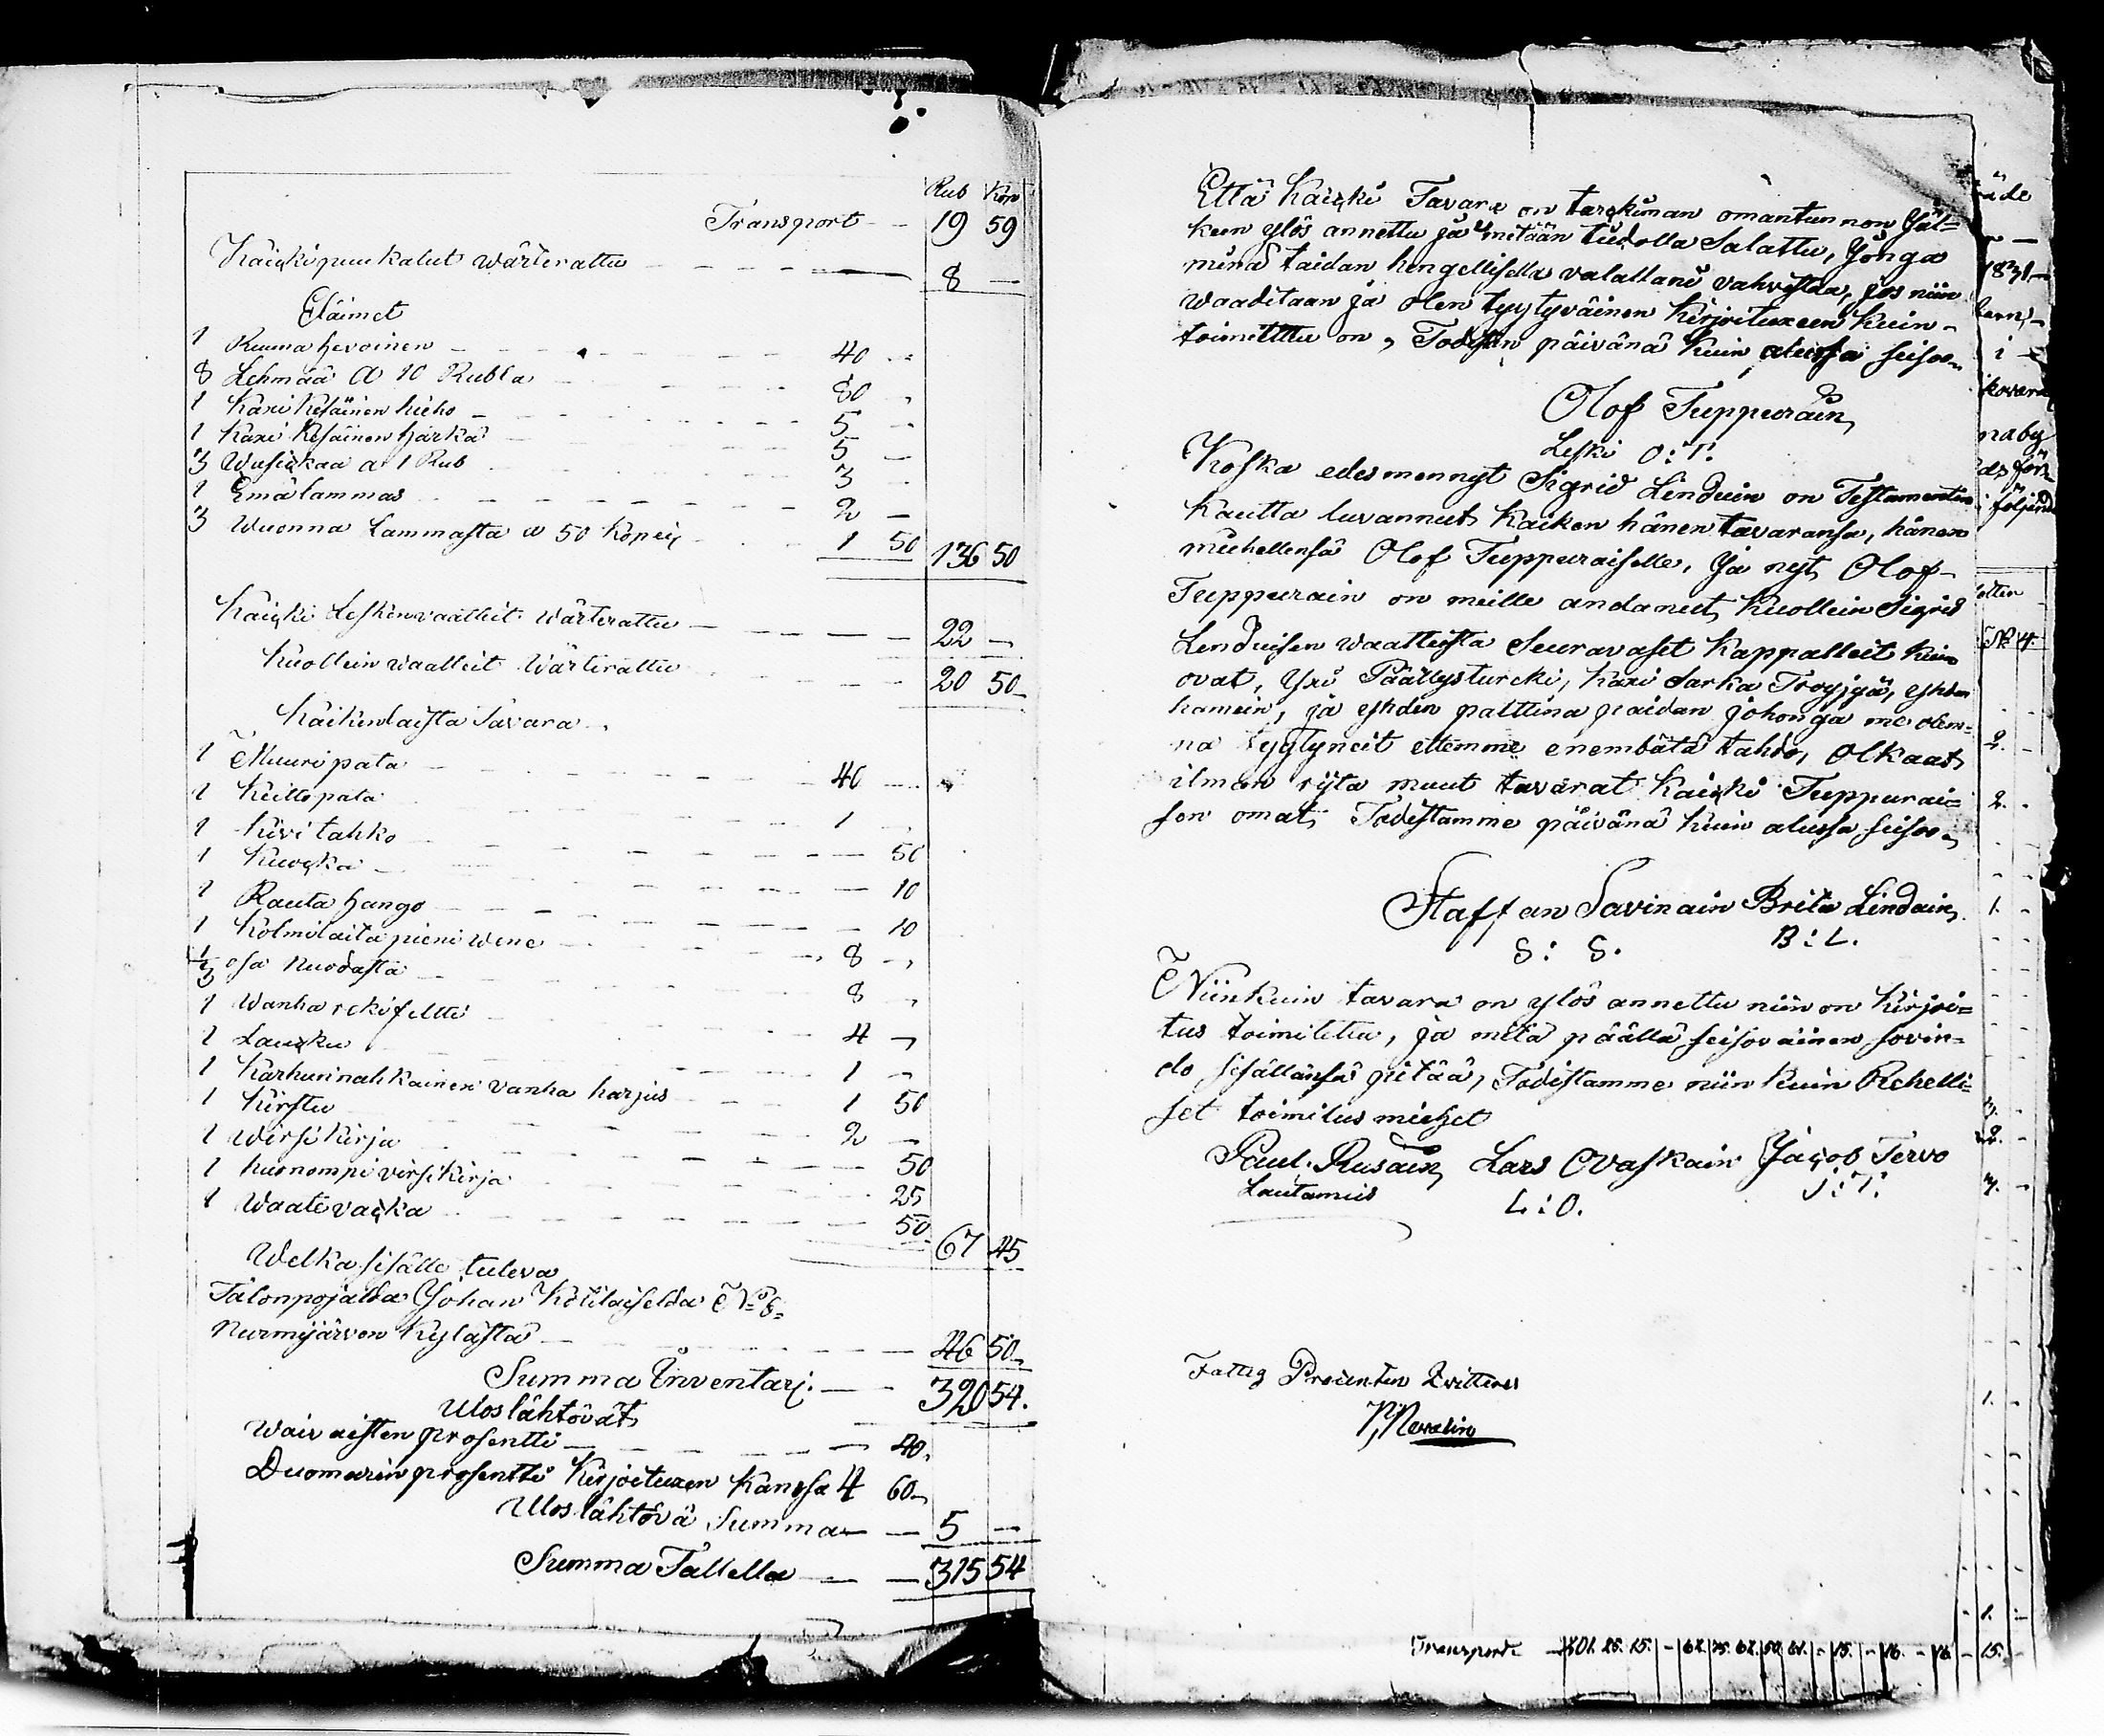 Rub Kop
Transport - 19 59
Kaicki puukalut wärterattu - 8 -
Eläimet
1 Ruuna hevoinen - 40 -
8 Lehmää a 10 Rubla - 80 -
1 Kaxi Kesäinen hieho - 5 -
1 Kaxi Kesäinen härkä - 5 -
3 Wasickaa a 1 Rub - 3 -
1 Emä lammas - 2 -
3 Wuonna Lammasta a 50 Kopeic - 1 50 136 50
Kaicki Lesken vaatteit wärterattu - 22 -
Kuollein waatteit wärterattu - 20 50
Kaikenlaista Tavara
1 Muuri pata - 40 -
1 Keitto pata - 1 -
1 Kivi tahko - 50
1 Kuocka - 10
1 Rauta hango - 10
1 Kolmilaita pieni wene - 8 -
1/3 osa nuodasta - 8 -
1 Wanha reki feltti - 4 -
1 Laucku - 1 -
1 Karhunnahkainen vanha harjus - 1 50
1 Kirstu - 2 -
1 Wirsi Kirja - 50
1 huonompi virsi Kirja - 25
1 Waate vacka - 50 67 45
Welka sisälle tuleva
Talonpojalda Johan Kötilaiselda No 8
Nurmijärven Kylästä - 46 50
Summa Inventarj. - 320 54.
Ulos lähtövät
Waivaisten prosentti - 40
Duomarin prosentti Kirjoituxen Kanssa 4 60
Ulos lähtövä Summa - 5 -
Summa Tallella - 315 54
Että Kaicki Tavara on tarckiman omantunnon Jäl=
keen ylös annettu ja ei mitään tiedolla Salattu, Jonga
minä taidan hengellisellä valallani vahvistaa, jos niin
waaditaan ja olen tyytyväinen Kirjoituxeen Kuin
toimitettu on, Todistan päivänä Kuin alussa seisoo
Olof Tuppurain
Leski O: T.
Koska edesmennyt Sigrid Linduin on Testamentin
Kautta luvannut Kaiken hänen tavaransa, hänen
miehellensä Olof Tuppuraiselle, Ja nyt Olof
Tuppurain on meille andanut Kuollein Sigrid
Lenduisen waatteista Seuravaset Kappalleit Kuin
ovat, Yxi Päällysturcki, Kaxi Sarka Tröyjyä, yhden
hamein, ja yhden palttina paidan johonga me olem=
ma tyytyneit ettemme enembätä tahdo, Olkaat
ilman rijta muut tavarat Kaicki Tuppurai=
sen omat, Todistamme päivänä Kuin alussa seisoo
Staffan Savinain Brita Lindain
S: S. B: L.
Niinkuin tavara on ylös annettu niin on Kirjoi=
tus toimitettu, ja mitä päällä seisovainen sovin=
do sisällänsä pitää, Todistamme niin Kuin Rehelli=
set toimitus miehet
Paul. Rusain Lars Ovaskain Jacob Tervo
Lautamies L: O. J: T:
Fattig Procenten Qvitteras